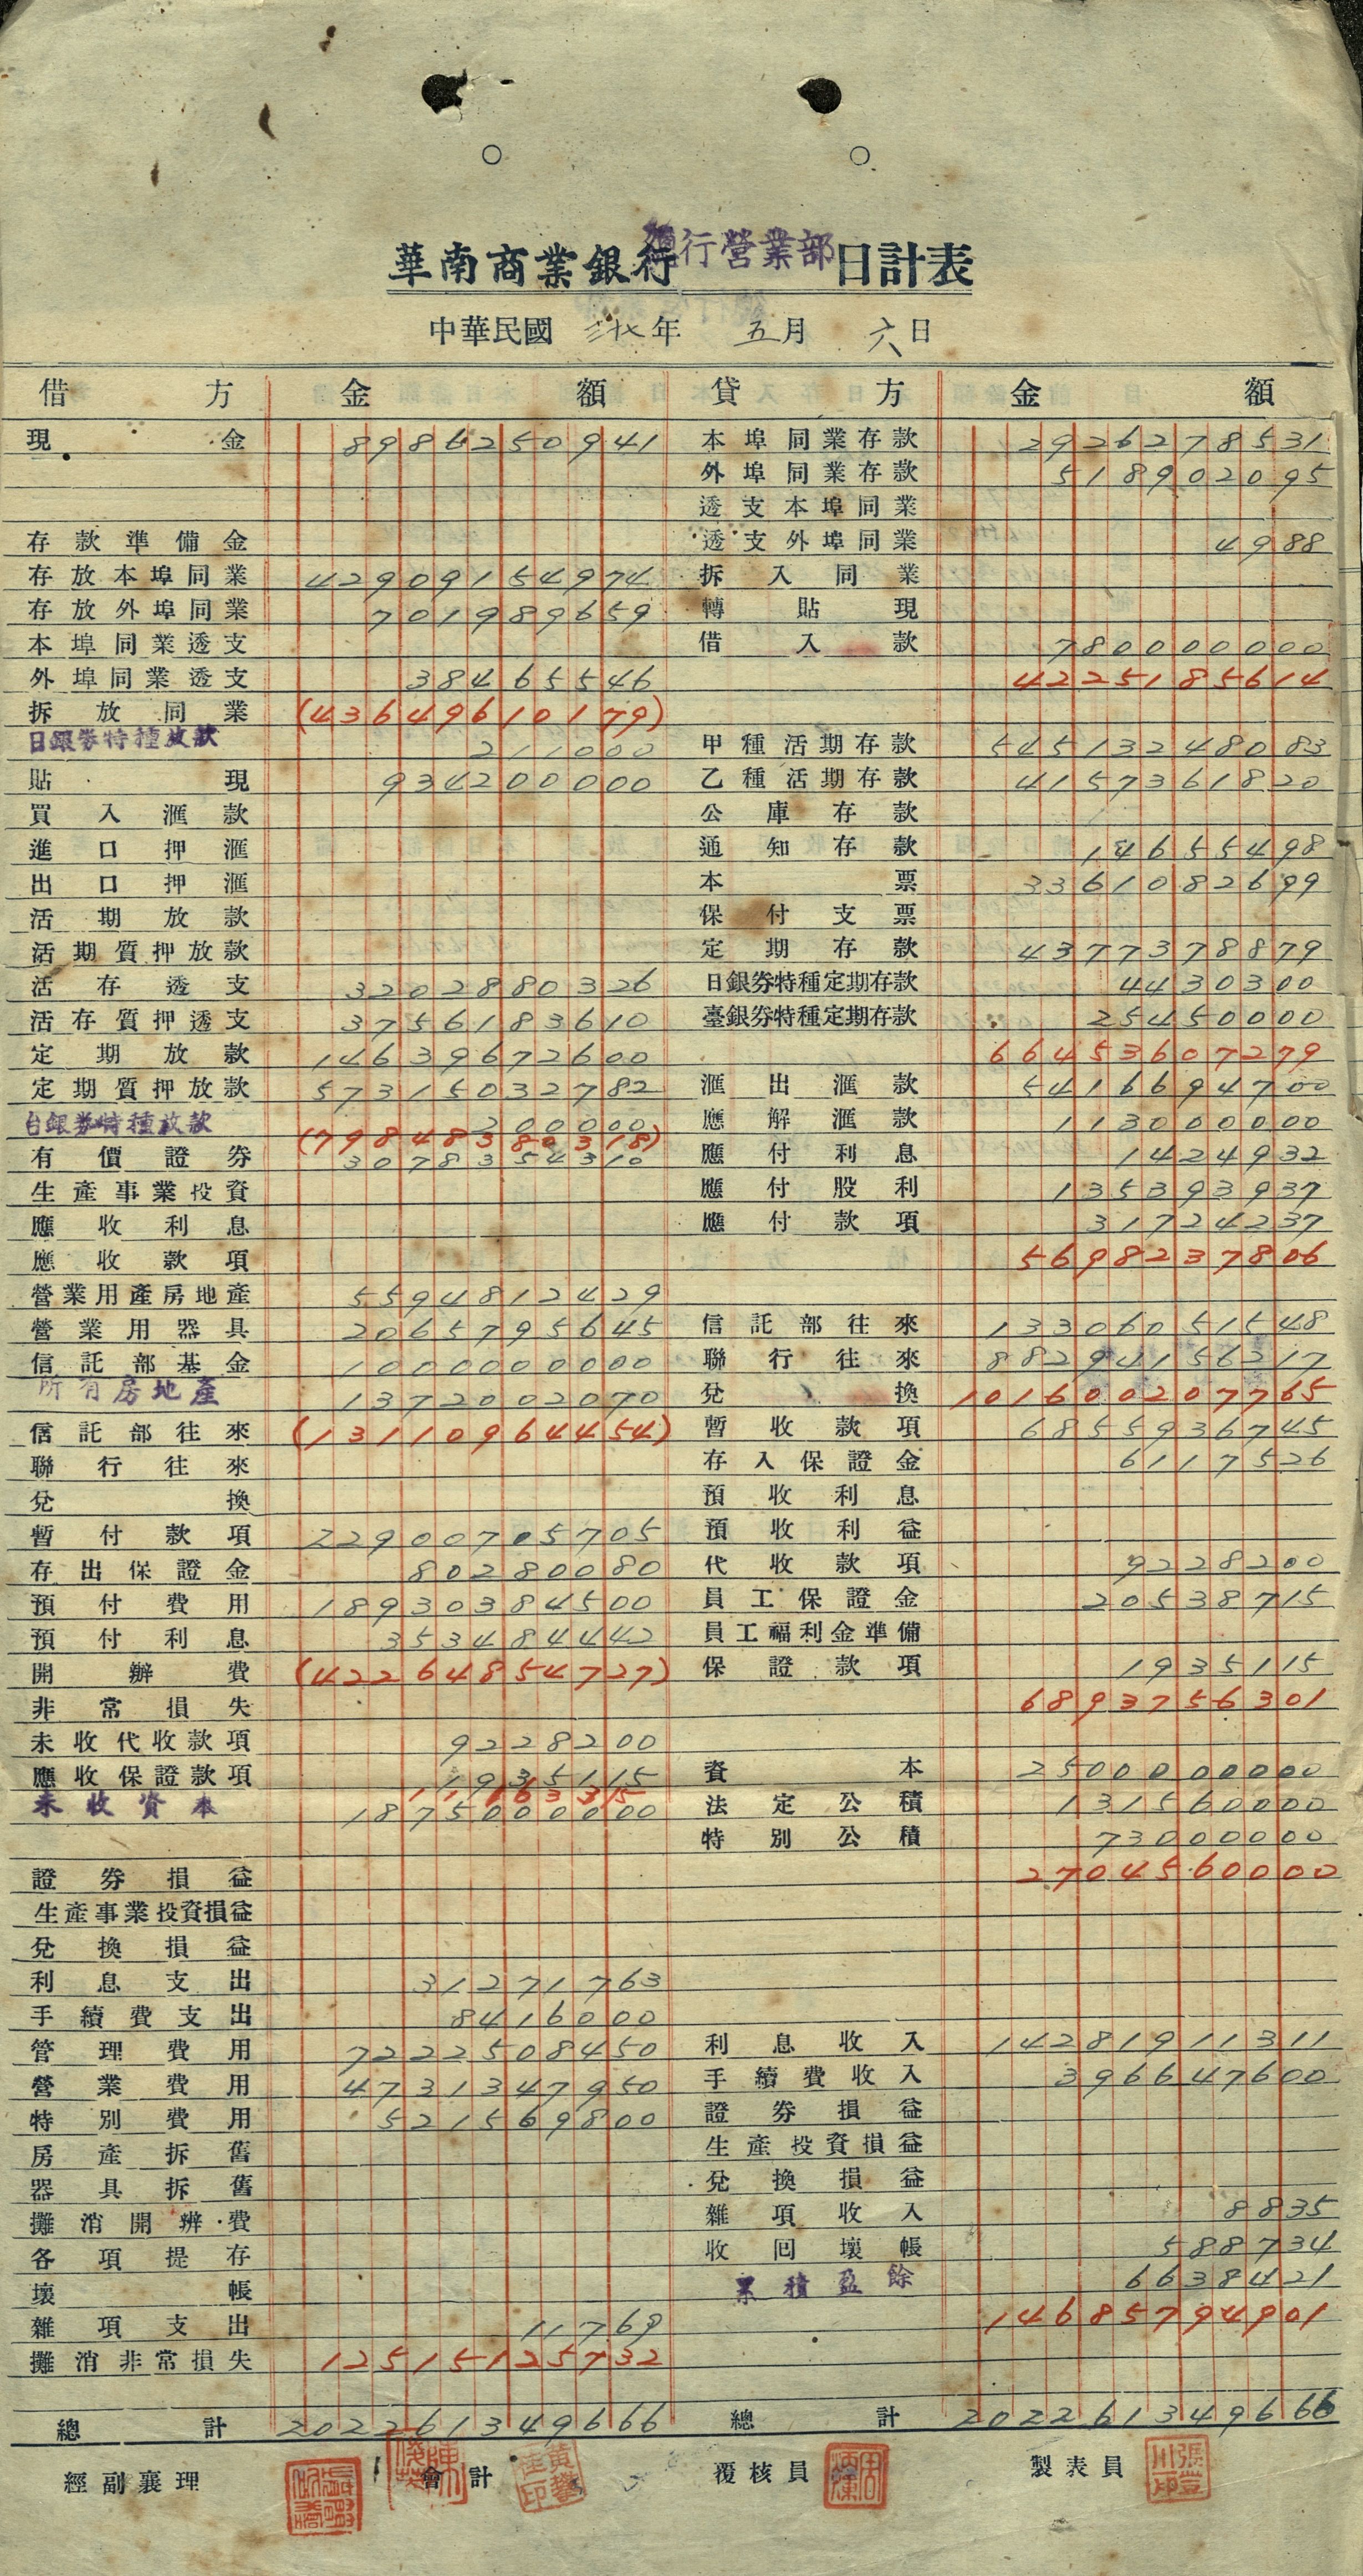 華南商業銀行總行營業部日計表
中華民國 三十七年 五月 六日
借方 金額 貸方 金額
現金 8986250941 本埠同業存款 29262778531
外埠同業存款 518902095
透支本埠同業
存款準備金 透支外埠同業 4988
存放本埠同業 42909154974 拆入同業
存放外埠同業 701989659 轉貼現
本埠同業透支 借入款 7800000000
外埠同業透支 38465546 4225185614
拆放同業 (43649610179)
日銀券特種放款 211000 甲種活期存款 54513248083
貼現 934200000 乙種活期存款 4157361820
買入滙款 公庫存款
進口押滙 通知存款 146555498
出口押滙 本票 3361082699
活期放款 保付支票
活期質押放款 定期存款 4377378879
活存透支 3202880326 日銀券特種定期存款 4430300
活存質押透支 3756183610 臺銀券特種定期存款 25450000
定期放款 14639672600 66453607279
定期質押放款 57315032782 滙出滙款 5416694700
台銀券特種放款 200000 應解滙款 1130000000
(79848380318)
有價證券 3078354310 應付利息 1424932
生產事業投資 應付股利 135393937
應收利息 應付款項 31724237
應收款項 5698237806
營業用產房地產 5594812429
營業用器具 2065795645 信託部往來 13306051548
信託部基金 1000000000 聯行往來 88294156217
所有房地產 1372002070 兌換 101600207765
信託部往來 (13110964454) 暫收款項 6855936745
聯行往來 存入保證金 6117526
兌換 預收利息
暫付款項 22900705705 預收利益
存出保證金 80280080 代收款項 9228200
預付費用 18930384500 員工保證金 20538715
預付利息 353484442 員工福利金準備
開辦費 (42264854727) 保證款項 1935115
非常損失 6893756301
未收代收款項 9228200
應收保證款項 1935115 資本 2500000000
11163315
未收資本 1875000000 法定公積 131560000
特別公積 73000000
證券損益 2704560000
生產事業投資損益
兌換損益
利息支出 31271763
手續費支出 8416000
管理費用 7222508450 利息收入 14281911311
營業費用 4731347950 手續費收入 396647600
特別費用 521569800 證券損益
房產拆舊 生產投資損益
器具拆舊 兌換損益
攤消開辦費 雜項收入 8835
各項提存 收回壞帳 588734
壞帳 累積盈餘 6638421
雜項支出 11769 14685794901
攤消非常損失 12515125732
總計 202261349666 總計 202261349666
經副襄理 會計 覆核員 製表員
張豐川印